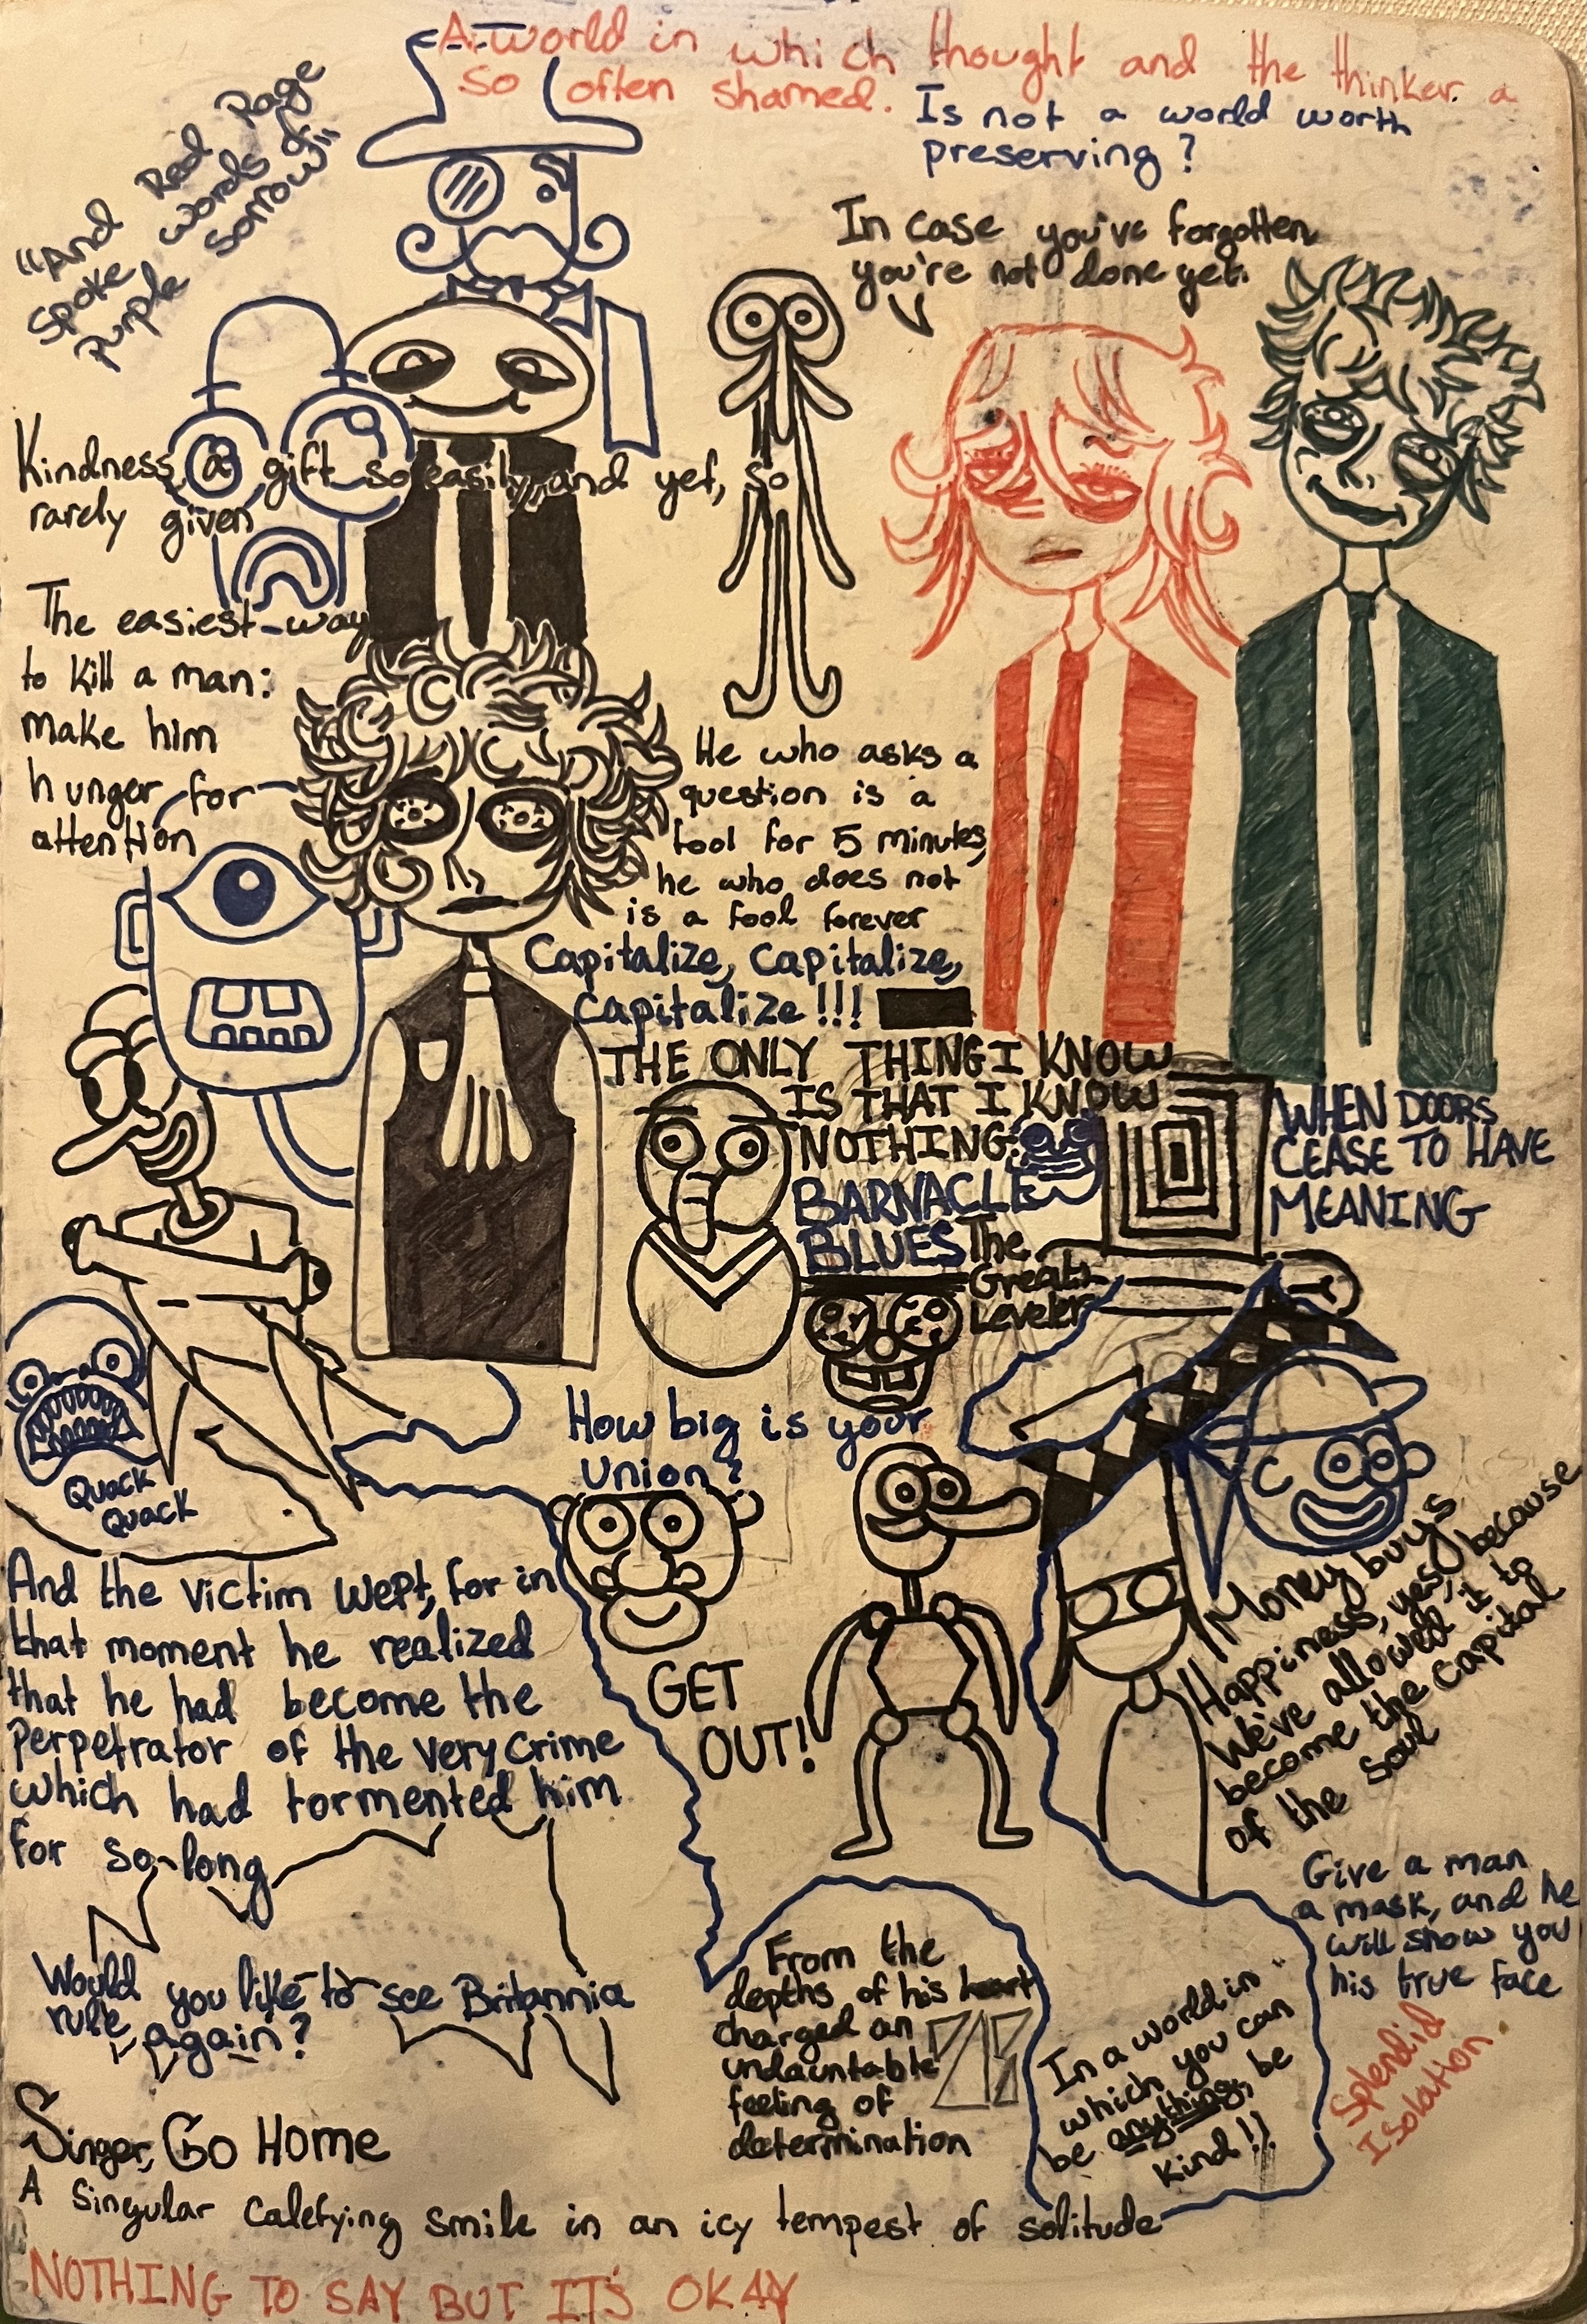 A world in which thought and the thinker a
so often shamed.
Is not a world worth
preserving?
"And Red Rage
spoke words of
purple sorrow"
In case you've forgotten
you're not done yet.
Kindness, a gift so easily, and yet, so
rarely given
The easiest way
to kill a man:
make him
hunger for
attention
He who asks a
question is a
fool for 5 minutes,
he who does not
is a fool forever
Capitalize, capitalize,
capitalize!!!
THE ONLY THING I KNOW
IS THAT I KNOW
NOTHING
BARNACLE
BLUES
WHEN DOORS
CEASE TO HAVE
MEANING
The
Great
Leveler
How big is your
union?
Quack
Quack
GET
OUT!
Money buys
Happiness, yes, because
We've allowed it to
become the capital
of the soul
And the victim wept, for in
that moment he realized
that he had become the
perpetrator of the very crime
which had tormented him
for so long
Give a man
a mask, and he
will show you
his true face
Would you like to see Britannia
rule, again?
From the
depths of his heart
charged an
undauntable
feeling of
determination
In a world in
which you can
be anything, be
kind!!
Splendid
Isolation.
Singer, Go Home
A singular calefying smile in an icy tempest of solitude
NOTHING TO SAY BUT IT'S OKAY